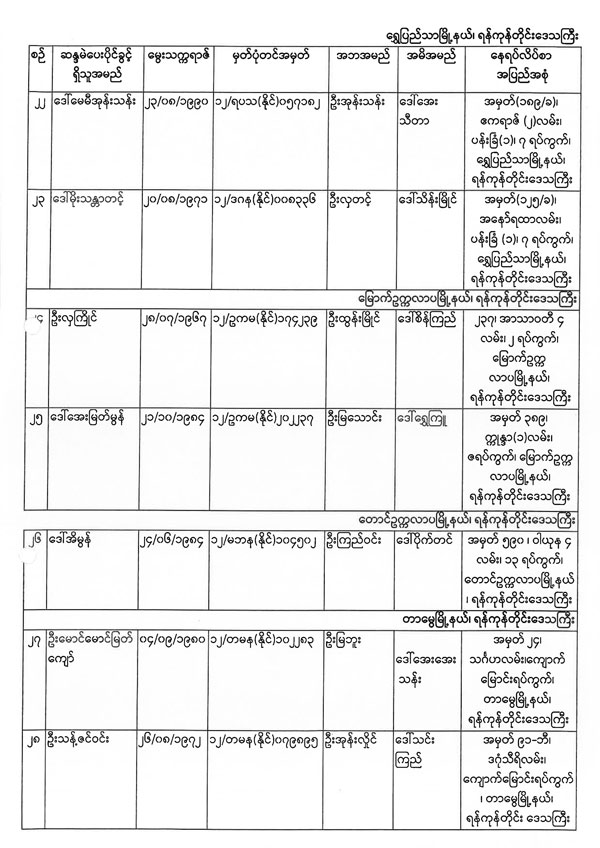 ရွှေပြည်သာမြို့နယ်၊ ရန်ကုန်တိုင်းဒေသကြီး
စဉ် ဆန္ဒမဲပေးပိုင်ခွင့် ရှိသူအမည် မွေးသက္ကရာဇ် မှတ်ပုံတင်အမှတ် အဘအမည် အမိအမည် နေရပ်လိပ်စာ အပြည်အစုံ
၂၂ ဒေါ်မေမီအုန်းသန်း ၂၃/၀၈/၁၉၉၀ ၁၂/ရပသ(နိုင်)၀၅၇၁၈၂ ဦးအုန်းသန်း ဒေါ်အေး အမှတ်(၁၈၉/ခ)၊
သီတာ ဧကရာဇ် (၂)လမ်း၊
ပန်းခြံ(၁)၊ ၇ ရပ်ကွက်၊
ရွှေပြည်သာမြို့နယ်၊
ရန်ကုန်တိုင်းဒေသကြီး
၂၃ ဒေါ်မိုးသန္တာတင့် ၂၀/၀၈/၁၉၇၁ ၁၂/ဒဂန(နိုင်)၀၀၈၃၃၆ ဦးလှတင့် ဒေါ်သိန်းမြိုင် အမှတ်(၁၂၅/ခ)၊
အနော်ရထာလမ်း၊
ပန်းခြံ (၁)၊ ၇ ရပ်ကွက်၊
ရွှေပြည်သာမြို့နယ်၊
ရန်ကုန်တိုင်းဒေသကြီး
မြောက်ဥက္ကလာပမြို့နယ်၊ ရန်ကုန်တိုင်းဒေသကြီး
၂၄ ဦးလှကြိုင် ၂၈/၀၇/၁၉၆၇ ၁၂/ဥကမ(နိုင်)၁၇၄၂၃၉ ဦးထွန်းမြိုင် ဒေါ်စိန်ကြည် ၂၃၇၊ အာသာဝတီ ၄
လမ်း၊ ၂ ရပ်ကွက်၊
မြောက်ဥက္က
လာပမြို့နယ်၊
ရန်ကုန်တိုင်းဒေသကြီး
၂၅ ဒေါ်အေးမြတ်မွန် ၂၁/၁၀/၁၉၈၄ ၁၂/ဥကမ(နိုင်)၂၀၂၂၃၇ ဦးမြသောင်း ဒေါ်ရွှေကြူ အမှတ် ၃၈၉၊
ဣန္ဒာ(၁)လမ်း၊
ဇရပ်ကွက်၊ မြောက်ဥက္က
လာပမြို့နယ်၊
ရန်ကုန်တိုင်းဒေသကြီး
တောင်ဥက္ကလာပမြို့နယ်၊ ရန်ကုန်တိုင်းဒေသကြီး
၂၆ ဒေါ်အိမွန် ၂၄/၀၆/၁၉၈၄ ၁၂/မဘန(နိုင်)၁၀၄၅၀၂ ဦးကြည်ဝင်း ဒေါ်ပိုက်တင် အမှတ် ၅၉၀ ၊ ဝါယုန ၄
လမ်း၊ ၁၃ ရပ်ကွက်၊
တောင်ဥက္ကလာပမြို့နယ်
၊ ရန်ကုန်တိုင်းဒေသကြီး
တာမွေမြို့နယ်၊ ရန်ကုန်တိုင်းဒေသကြီး
၂၇ ဦးမောင်မောင်မြတ် ၀၄/၀၉/၁၉၈၀ ၁၂/တမန(နိုင်)၁၀၂၂၈၃ ဦးမြဘူး ဒေါ်အေးအေး အမှတ် ၂၄၊
ကျော် သန်း သင်္ဂဟလမ်း၊ကျောက်
မြောင်းရပ်ကွက်၊
တာမွေမြို့နယ်၊
ရန်ကုန်တိုင်းဒေသကြီး
၂၈ ဦးသန့်ဇင်ဝင်း ၂၆/၀၈/၁၉၇၂ ၁၂/တမန(နိုင်)၀၇၉၈၉၅ ဦးအုန်းလှိုင် ဒေါ်သင်း အမှတ် ၉၁-ဘီ၊
ကြည် ဒဂုံသီရိလမ်း၊
ကျောက်မြောင်းရပ်ကွက်
၊ တာမွေမြို့နယ်၊
ရန်ကုန်တိုင်း ဒေသကြီး